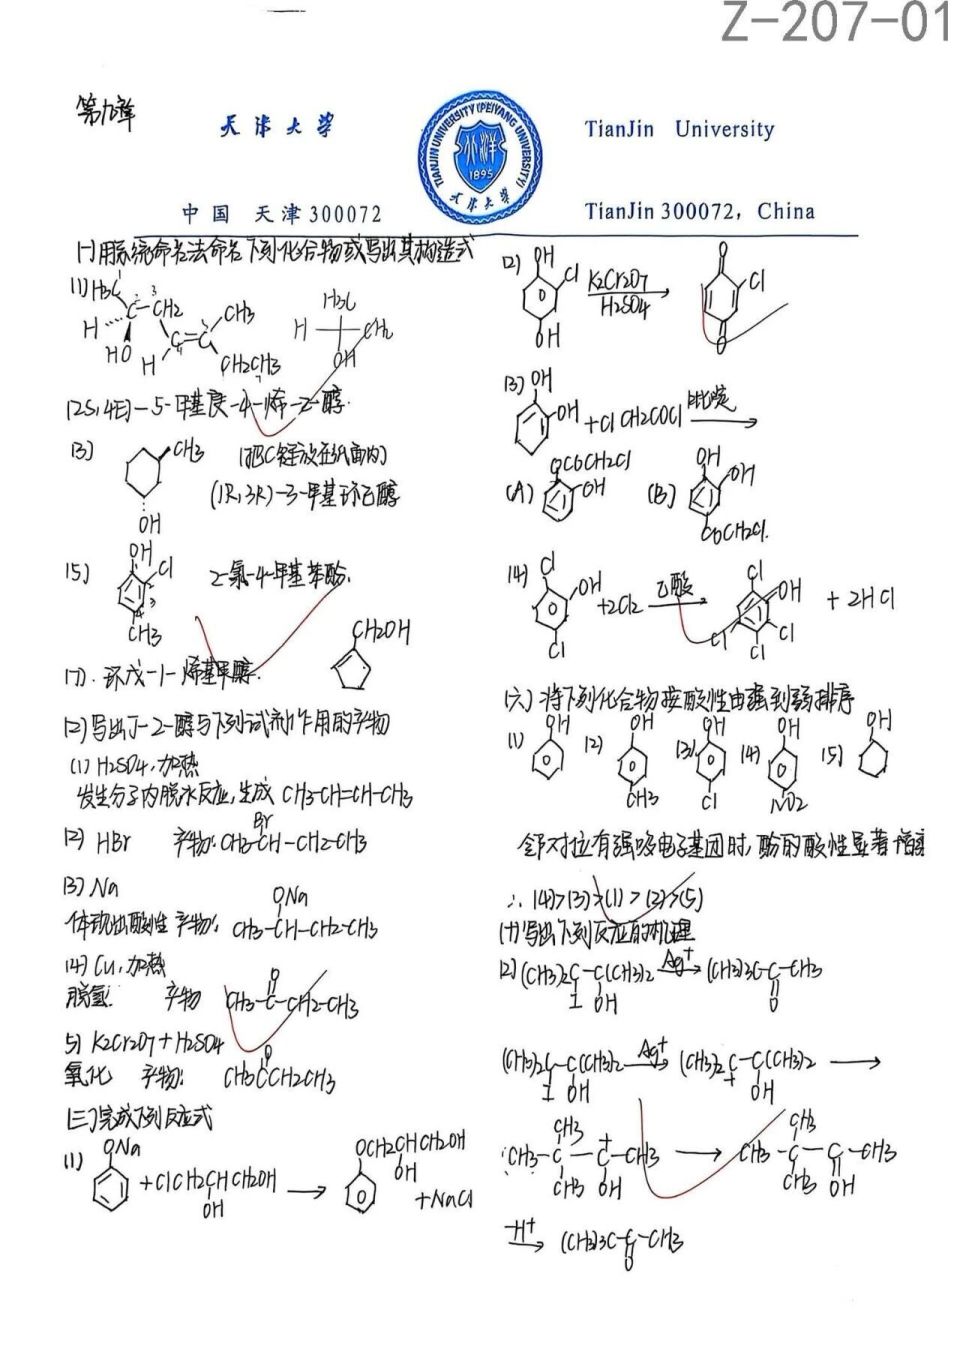 Z-207-01
第九章
天津大学
TIANJIN UNIVERSITY (PEIYANG UNIVERSITY)
北洋
1895
天津大学
TianJin University
中国 天津300072
TianJin 300072, China
(一)用系统命名法命名下列化合物或写出其构造式
(1) H3C
C-CH2
H
HO
H
C=C
CH3
CH2CH3
H3C
H
CH2
OH
(2S,4E)-5-甲基庚-4-烯-2-醇.
(3)
CH3
OH
(1R,3R)-3-甲基环己醇
(5)
OH
Cl
CH3
2-氯-4-甲基苯酚.
(7). 环戊-1-烯基甲醇.
CH2OH
(二)写出丁-2-醇与下列试剂作用的产物
(1) H2SO4,加热
发生分子内脱水反应,生成 CH3-CH=CH-CH3
(2) HBr 产物: CH3-CH-CH2-CH3
Br
(3) Na
体现出酸性 产物: CH3-CH-CH2-CH3
ONa
(4) Cu,加热
脱氢 产物 CH3-C-CH2-CH3
O
5) K2Cr2O7+H2SO4
氧化 产物: CH3CCH2CH3
O
(三)完成下列反应式
(1)
ONa
+ClCH2CHCH2OH
OH
OCH2CHCH2OH
OH
+NaCl
(2)
OH
Cl
OH
K2Cr2O7
H2SO4
O
Cl
O
(3) OH
OH
+Cl CH2COCl
吡啶
(A)
OCOCH2Cl
OH
(B)
OH
OH
COCH2Cl.
(4)
Cl
OH
Cl
+2Cl2
乙酸
Cl
OH
Cl
Cl
Cl
+ 2HCl
(六)将下列化合物按酸性由强到弱排序
(1) OH
(2) OH
CH3
(3) OH
Cl
(4) OH
NO2
(5) OH
邻对位有强吸电子基团时,酚的酸性显著增高
∴ (4)>(3)>(1)>(2)>(5)
写出下列反应的机理
(2) (CH3)2C-C(CH3)2
I OH
Ag+
(CH3)3C-C-CH3
O
(CH3)2C-C(CH3)2
I OH
Ag+
(CH3)2C-C(CH3)2
+ OH
CH3
CH3-C-C-CH3
+
CH3 OH
CH3
CH3-C-C-CH3
CH3 OH
-H+
(CH3)3C-C-CH3
O